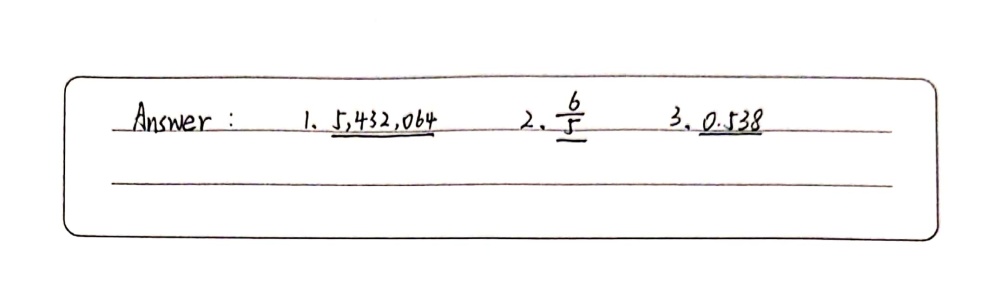 Answer : 1. 5,432,064 2. 6/5 3. 0.538